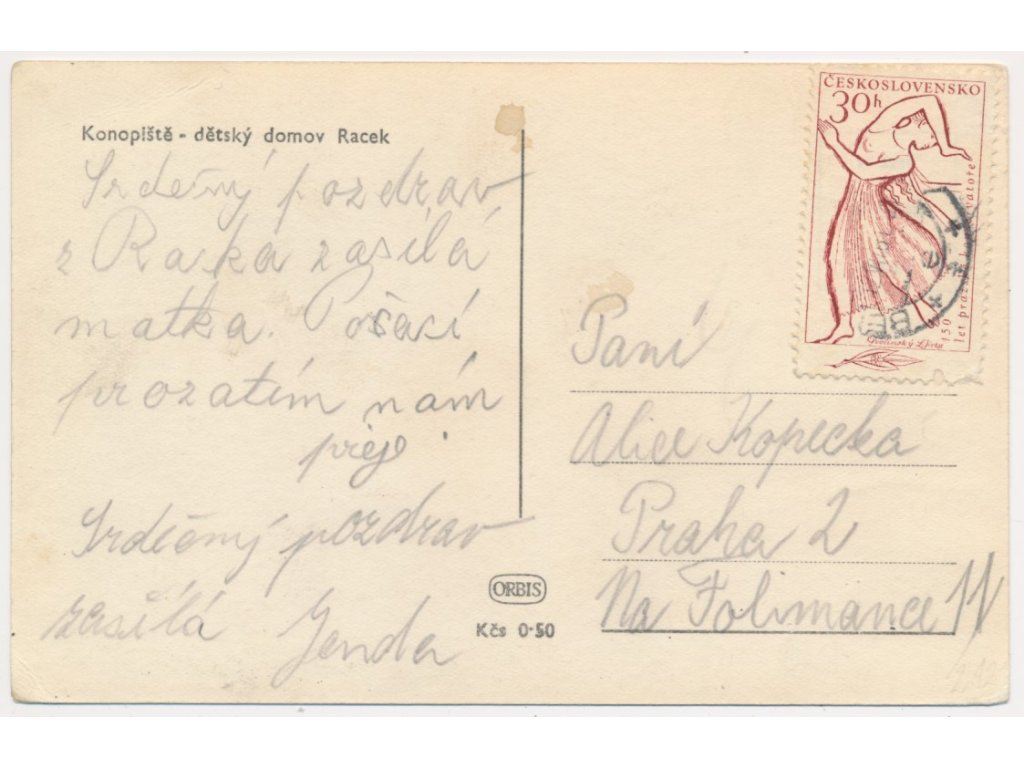 Konopiště - dětský domov Racek
Srdečný pozdrav
z Racka zasílá
matka. Počasí
prozatím nám
přeje.
Srděčný pozdrav
zasílá Jenda
ORBIS
Kčs 0·50
ČESKOSLOVENSKO
30h
150 let praž
vatoře
BE
Paní
Alice Kopecká
Praha 2
Na Folimance 11